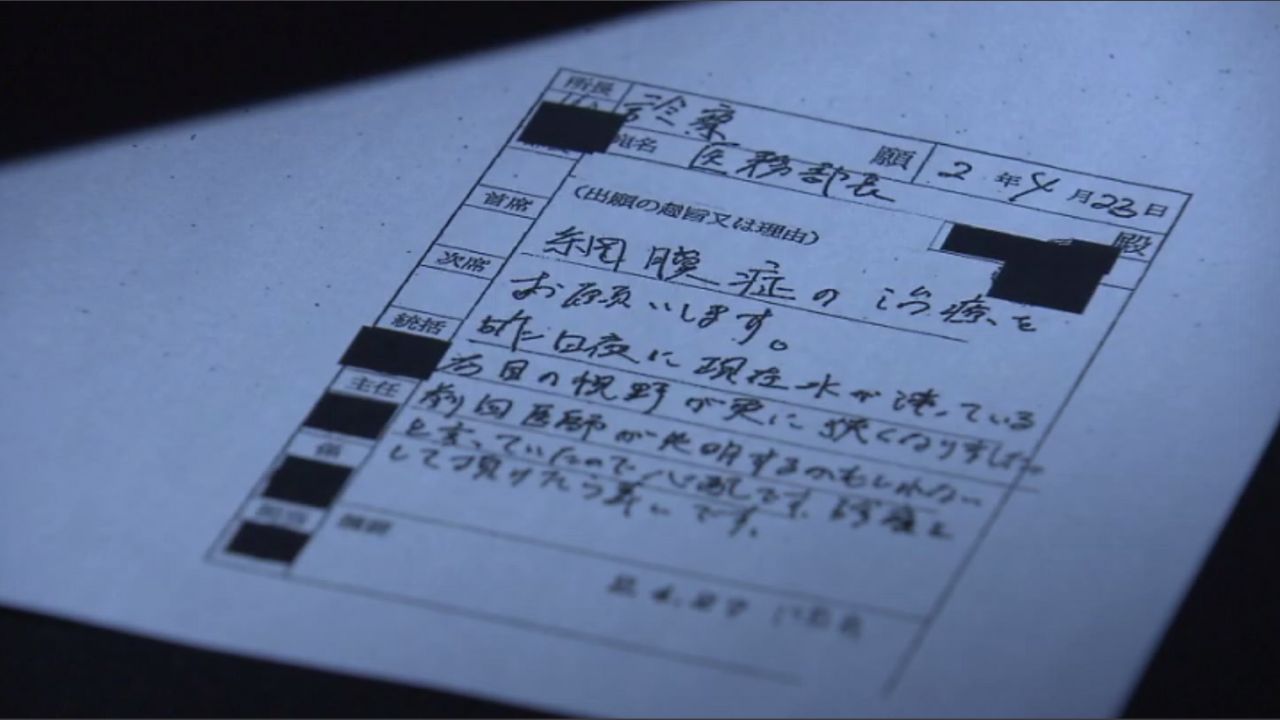 所長
診察 願 2年4月23日
宛名 医務部長 殿
首席
次席
統括
主任
担当
(出願の趣旨又は理由)
網膜症の治療を
お願いします。
昨日夜に現在水が凍っている
右目の視野が更に狭くなりました。
前回医師が失明するかもしれない
と言っていたので心配です。診療を
して頂けたら幸いです。
摘要